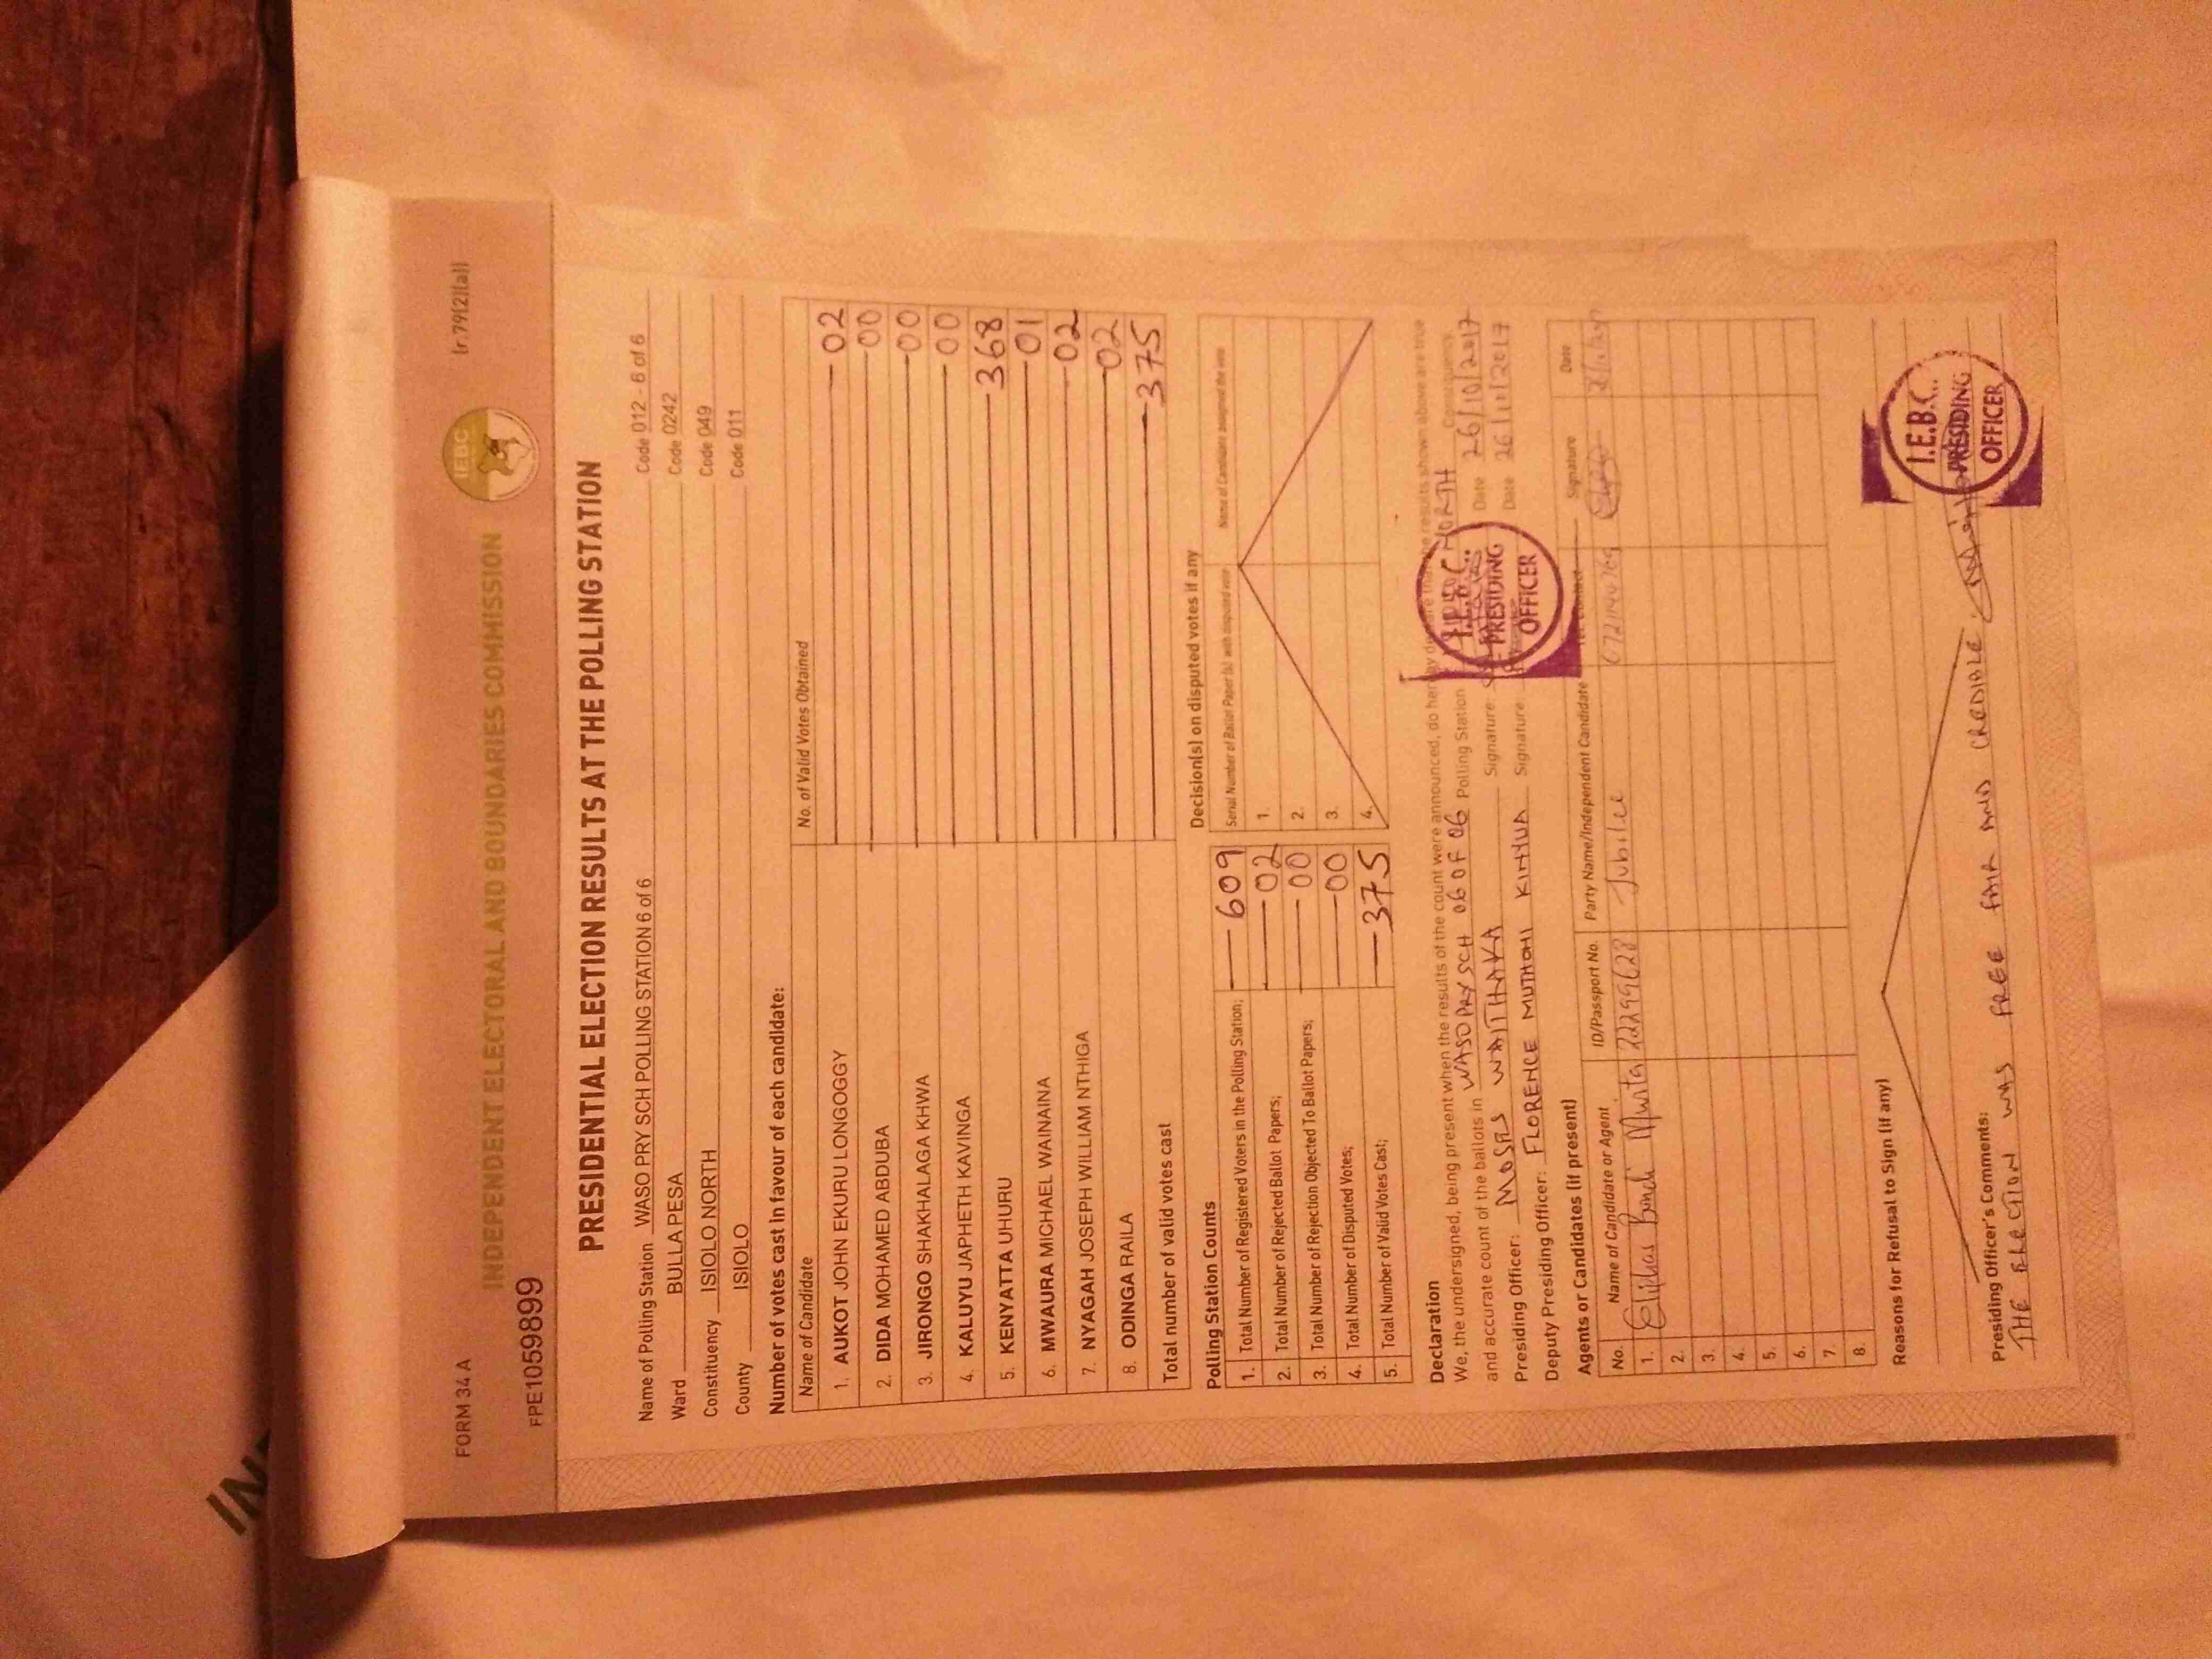 FORM 34 A
(r.79(2)(a))
IEBC
INDEPENDENT ELECTORAL AND BOUNDARIES COMMISSION
FPE1059899
PRESIDENTIAL ELECTION RESULTS AT THE POLLING STATION
Name of Polling Station WASO PRY SCH POLLING STATION 6 of 6 Code 012 - 6 of 6
Ward BULLA PESA Code 0242
Constituency ISIOLO NORTH Code 049
County ISIOLO Code 011
Number of votes cast in favour of each candidate:
Name of Candidate No. of Valid Votes Obtained
1. AUKOT JOHN EKURU LONGOGGY 02
2. DIDA MOHAMED ABDUBA 00
3. JIRONGO SHAKHALAGA KHWA 00
4. KALUYU JAPHETH KAVINGA 00
5. KENYATTA UHURU 368
6. MWAURA MICHAEL WAINAINA 01
7. NYAGAH JOSEPH WILLIAM NTHIGA 02
8. ODINGA RAILA 02
Total number of valid votes cast 375
Polling Station Counts
1. Total Number of Registered Voters in the Polling Station; 609
2. Total Number of Rejected Ballot Papers; 02
3. Total Number of Rejection Objected To Ballot Papers; 00
4. Total Number of Disputed Votes; 00
5. Total Number of Valid Votes Cast; 375
Decision(s) on disputed votes if any
Serial Number of Ballot Paper (s) with disputed vote Name of Candidate assigned the vote
1.
2.
3.
4.
Declaration
We, the undersigned, being present when the results of the count were announced, do hereby declare that the results shown above are true
and accurate count of the ballots in WASO PRY SCH 06 OF 06 Polling Station NORTH Constituency
Presiding Officer: MOSES WAITHAKA Signature: Date 26/10/2017
Deputy Presiding Officer: FLORENCE MUTHONI KINYUA Signature: Date 26/10/2017
I.E.B.C.
PRESIDING
OFFICER
Agents or Candidates (if present)
No. Name of Candidate or Agent ID/Passport No. Party Name/Independent Candidate Signature Date
1. Eliphas Bundi 22299628 Jubilee
2.
3.
4.
5.
6.
7.
8.
Reasons for Refusal to Sign (if any)
Presiding Officer's Comments:
THE ELECTION WAS FREE FAIR AND CREDIBLE.
I.E.B.C.
PRESIDING
OFFICER